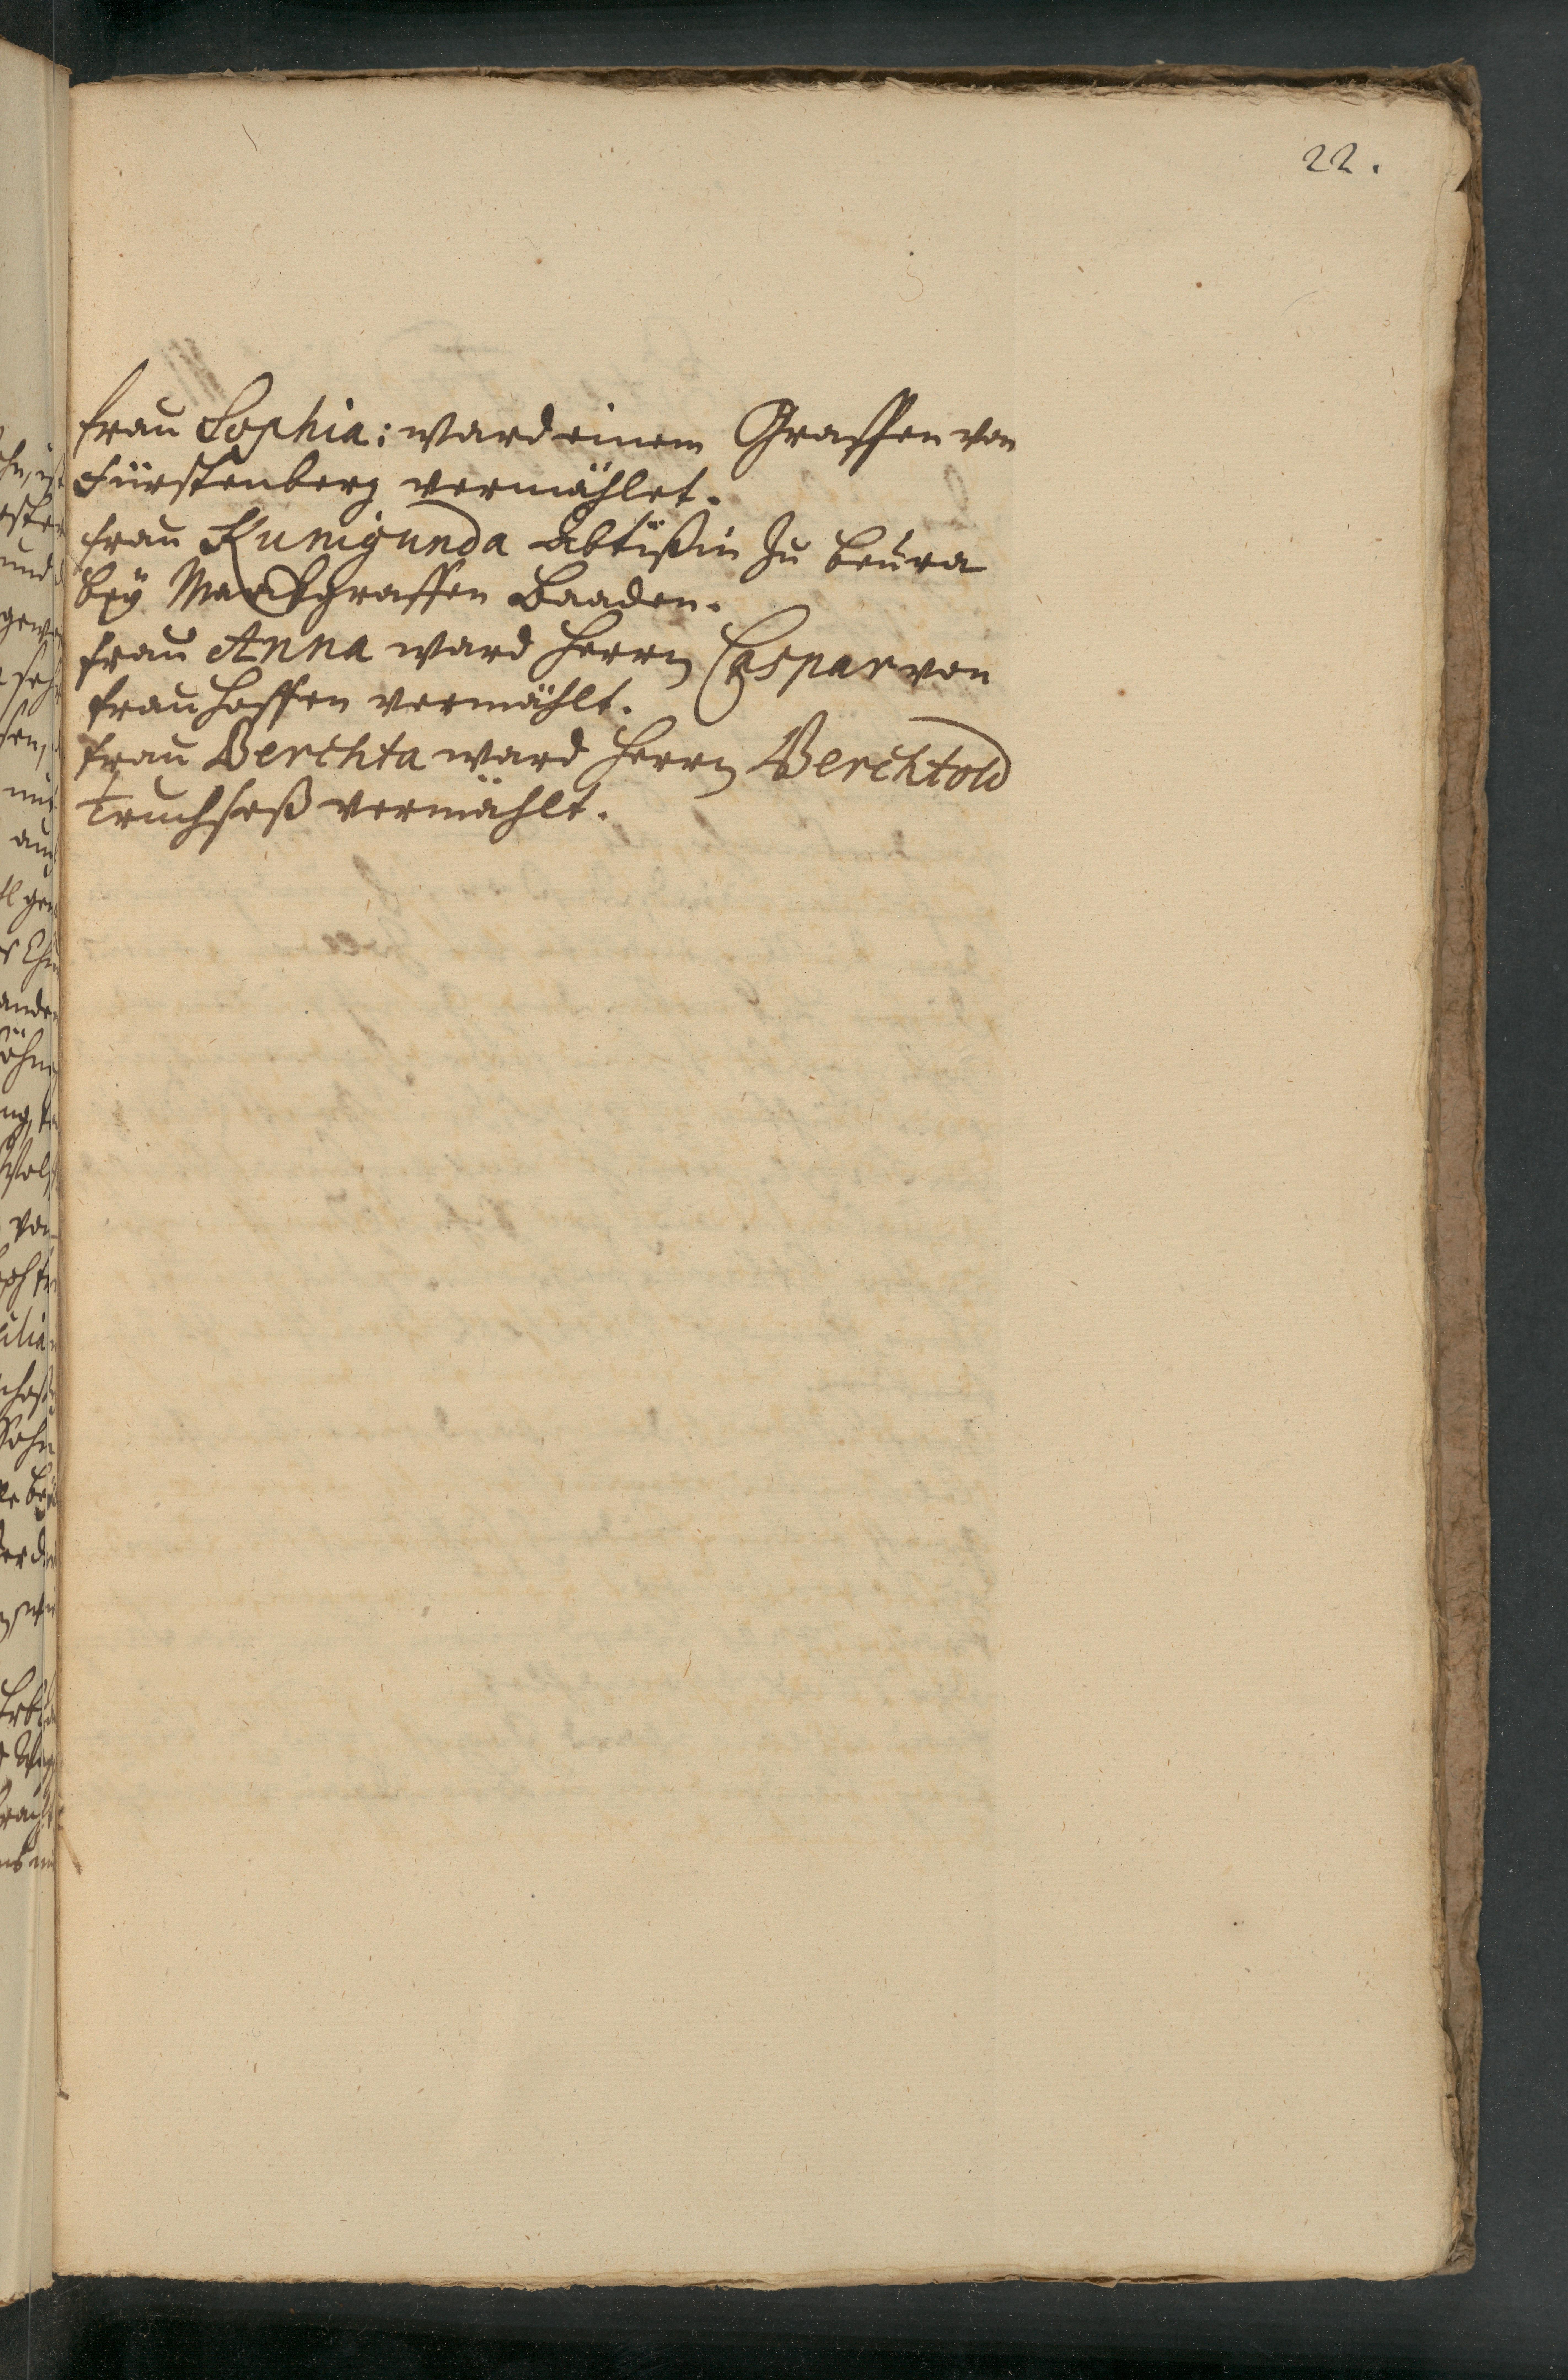 22.
Frau Sophia: ward einem Graffen von
Fürstenberg vermählet.
Frau Kunigunda Abtißin zu Beura
beÿ Markgraffen Baaden.
Frau Anna ward Herrn Caspar von
Frauhoffen vermählt.
Frau Berchta ward Herrn Berchtold
Truchseß vermählt.